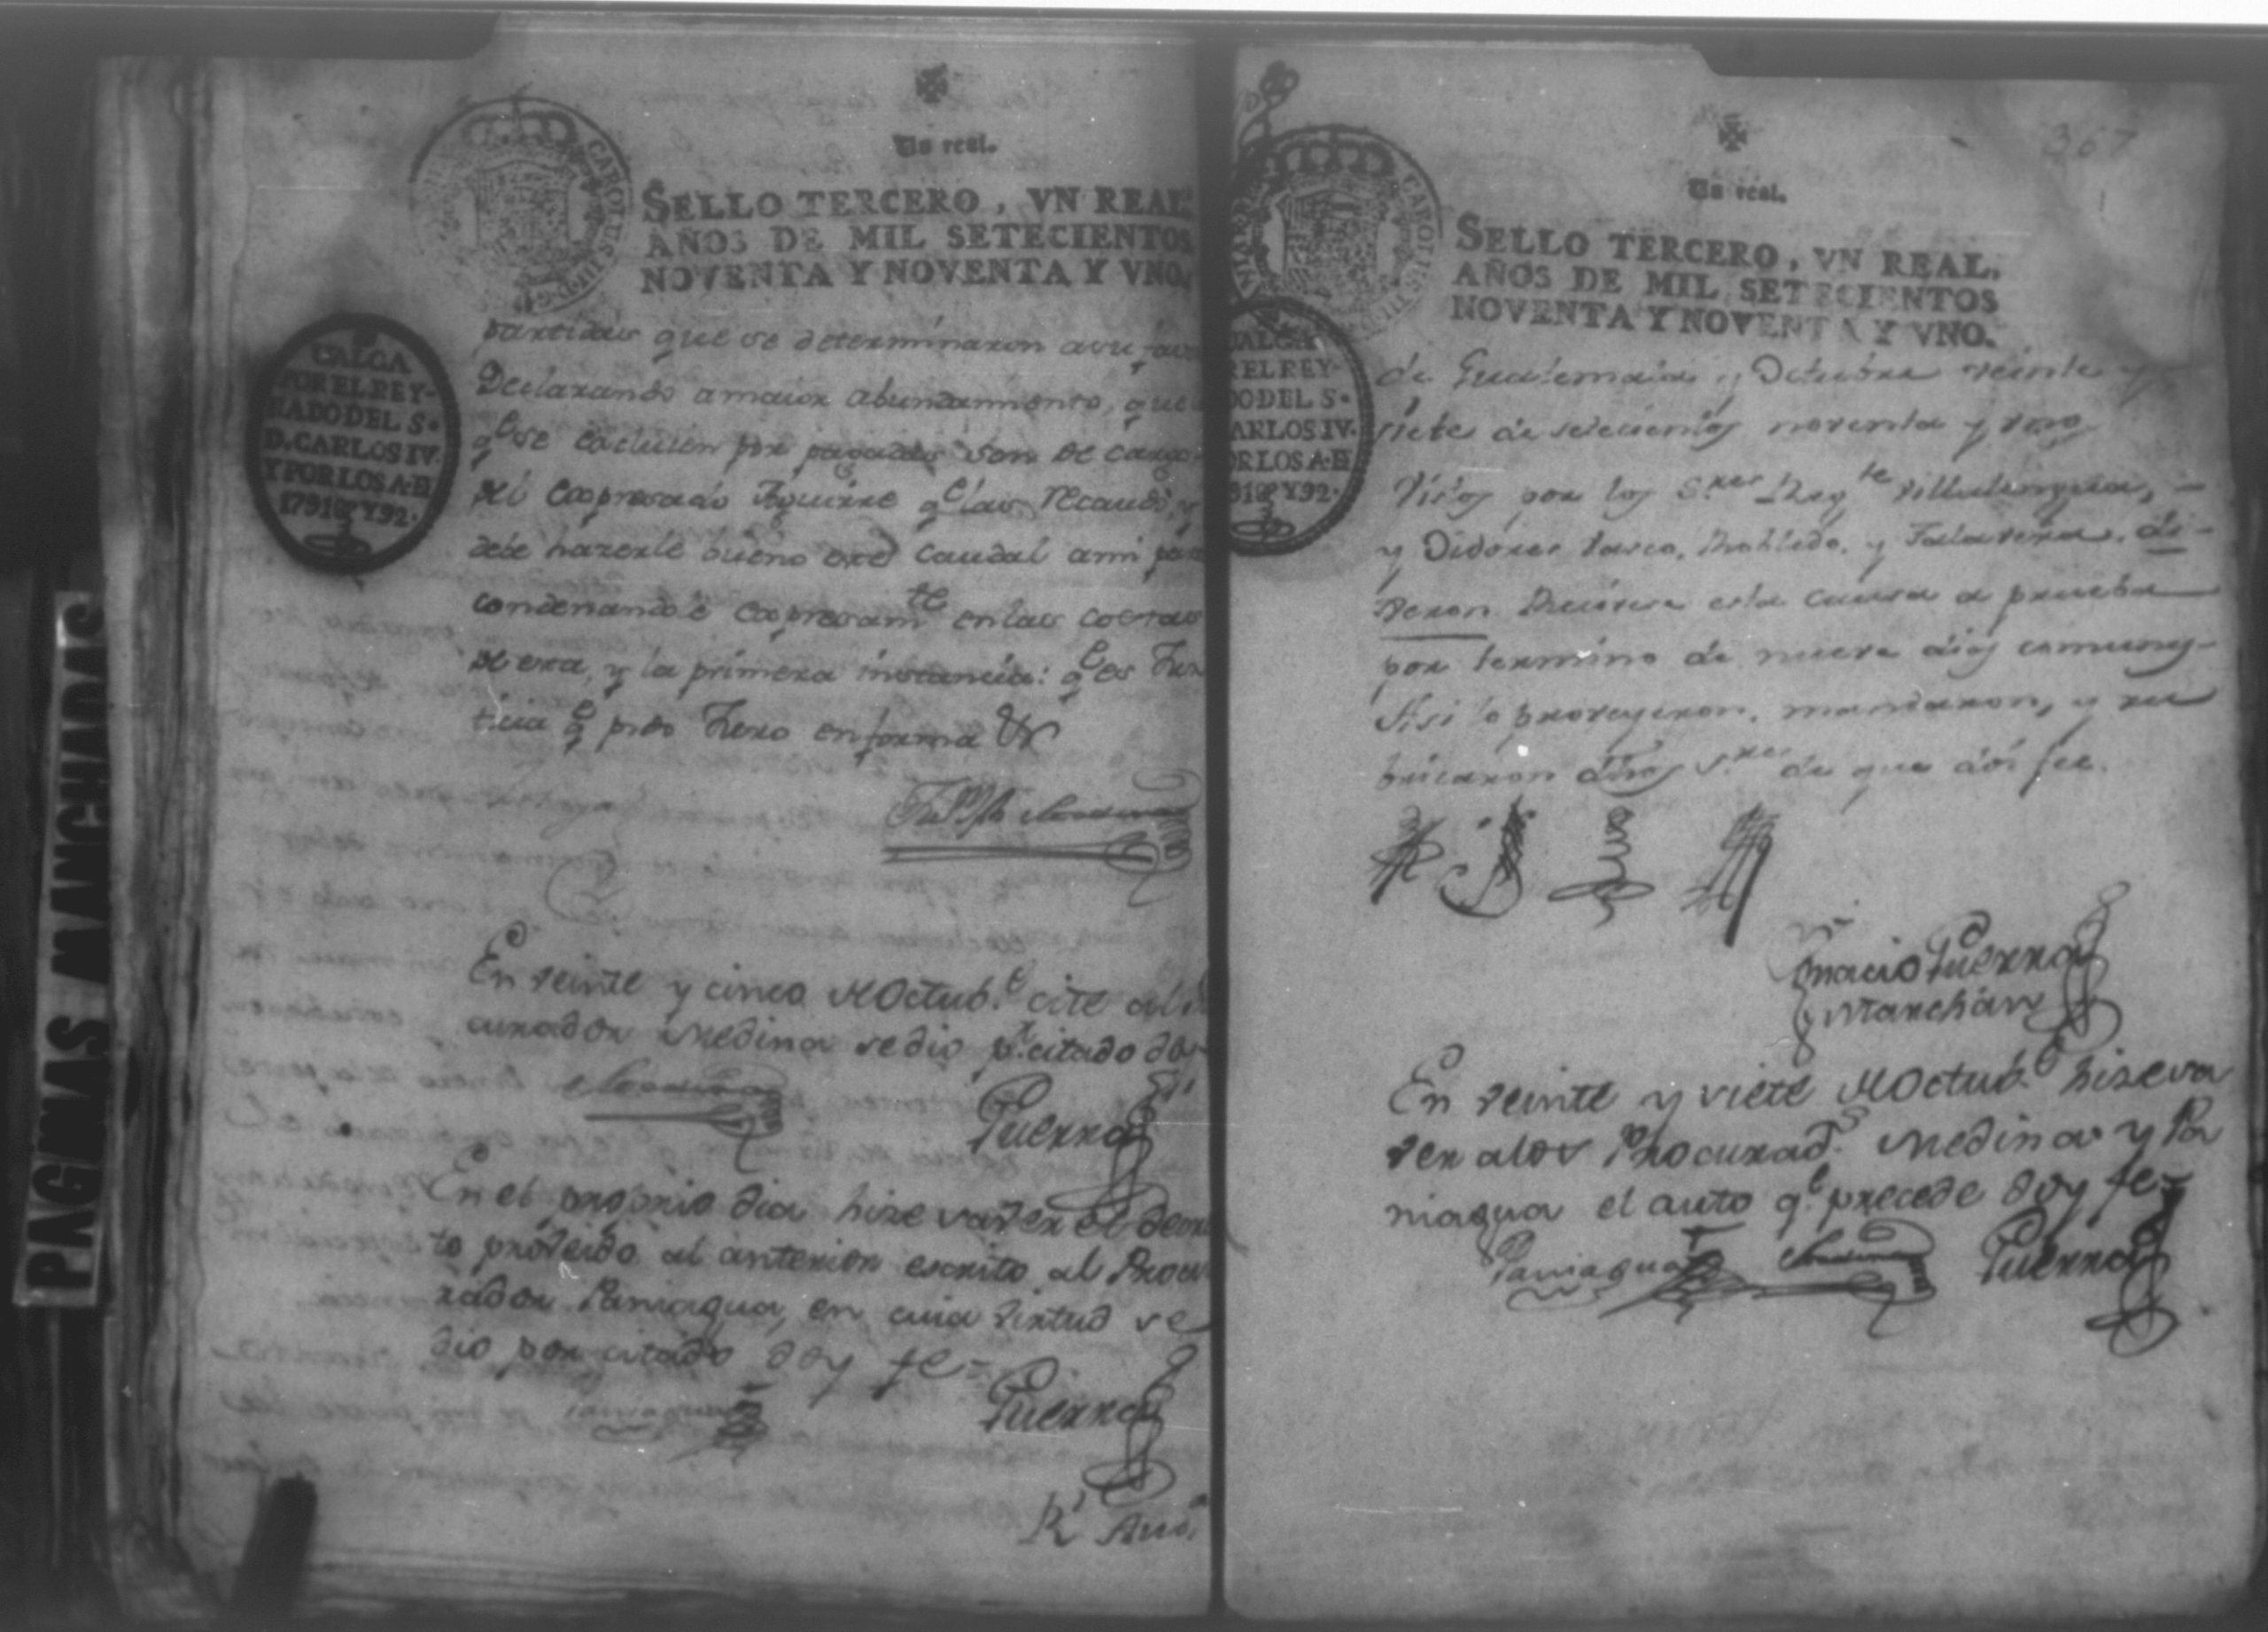 PAGINAS MANCHADAS
Un real.
SELLO TERCERO, VN REAL
AÑOS DE MIL SETECIENTOS
NOVENTA Y NOVENTA Y VNO.
CAROLUS
VALGA
POR EL REY-
NADO DEL S.
D. CARLOS IV.
Y POR LOS A. D
1791 Y 92.
partidas que se determinaron asu
Declarando amaior abundamiento, que
qe se excluien por pagadas son de cargo
del expresado Aguirre qe las recaudó, y
debe hazerle bueno este caudal ami
condenandole expresamte enlas costas
de esta, y la primera instancia: qe es Jus
ticia qe pido Juro enforma &
Medina
En veinte y cinco de Octub.e cite al
curador Medina se dio pr. citado doy
Medina Guerra
En el proprio dia hize saver el
to proveido al anterior escrito al Procu
rador Paniagua, en cuia virtud se
dio por citado doy fe=
Paniagua Guerra
Rl Auda
367
Un real.
SELLO TERCERO, VN REAL,
AÑOS DE MIL SETECIENTOS
NOVENTA Y NOVENTA Y VNO.
CAROLUS
VALGA
R EL REY-
DO DEL S.
CARLOS IV.
OR LOS A. D
91 Y 92.
de Guatemala y Octubre veinte y
siete de setecientos noventa y uno
Vistos por los Sres Regte Villalengua,
y Oidores Vasco, Robledo, y Talavera, di-
xeron Recivese esta causa a prueba
por termino de nueve dias comunes
Asi lo proveyeron, mandaron, y ru
bricaron dhos Sres de que doi fee.
Ignacio Guerra
y Marchán
En veinte y siete de Octub.e hize sa
ver alos Procurads. Medina y Pa
niagua el auto qe. precede doy fe=
Paniagua Medina Guerra